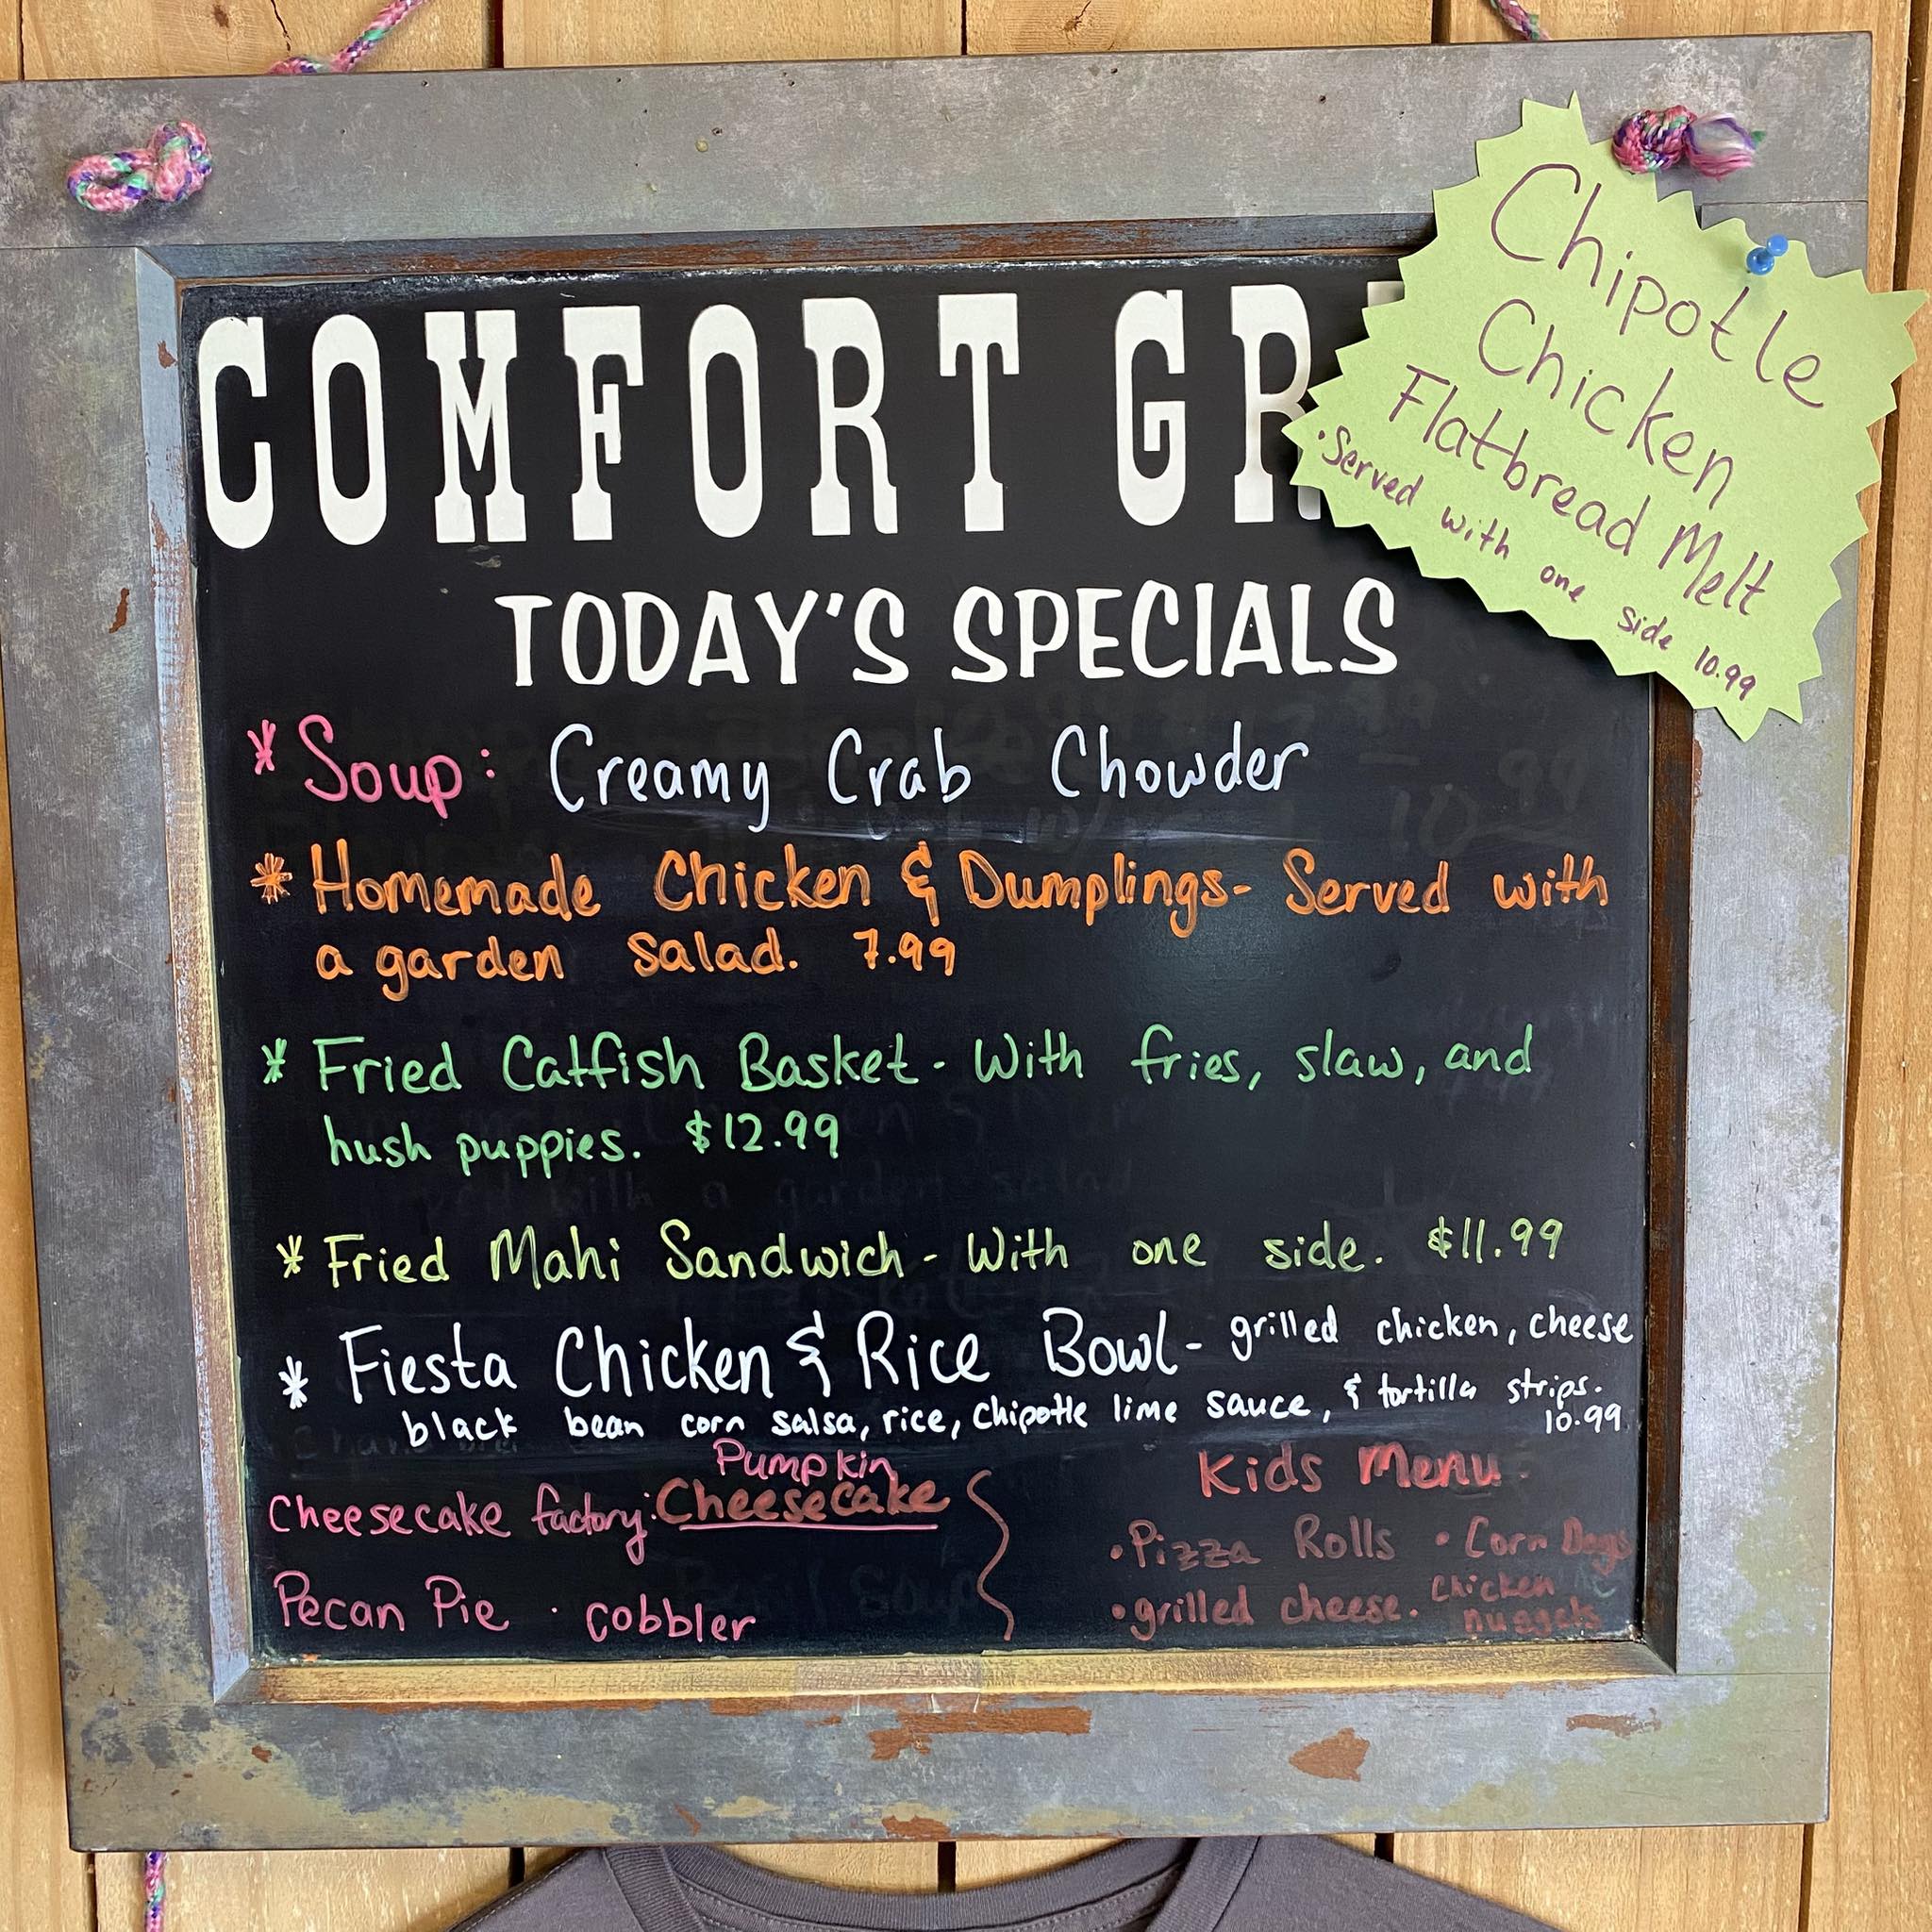 COMFORT GR
TODAY'S SPECIALS
Chipotle
Chicken
Flatbread Melt
• Served with one side 10.99
* Soup: Creamy Crab Chowder
* Homemade Chicken & Dumplings- Served with
a garden salad. 7.99
* Fried Catfish Basket- With fries, slaw, and
hush puppies. $12.99
* Fried Mahi Sandwich- With one side. $11.99
* Fiesta Chicken & Rice Bowl- grilled chicken, cheese
black bean corn salsa, rice, chipotle lime sauce, & tortilla strips.
10.99
Pumpkin
Cheesecake factory: Cheesecake
Pecan Pie · cobbler
Kids Menu
• Pizza Rolls • Corn Dogs
• grilled cheese. chicken
nuggets